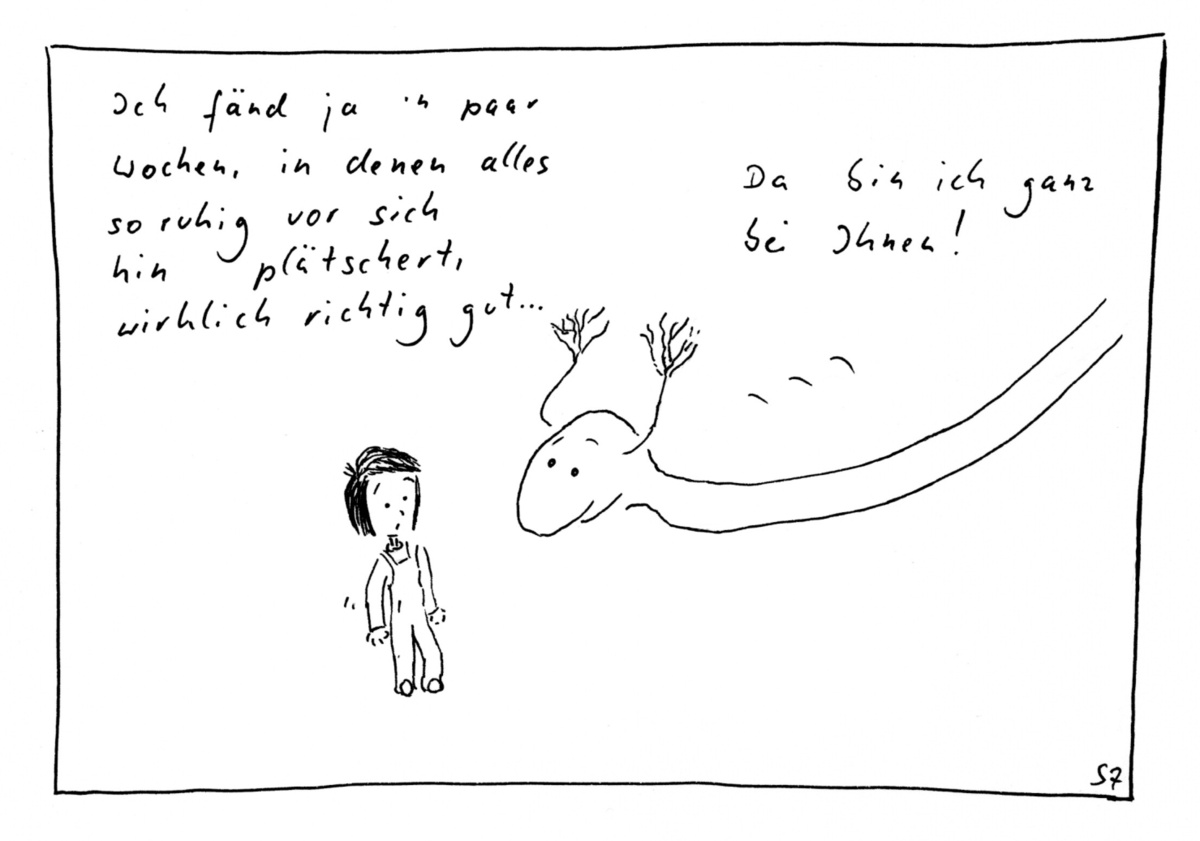 Ich fänd ja 'n paar
Wochen, in denen alles
so ruhig vor sich
hin plätschert,
wirklich richtig gut...
Da bin ich ganz
bei Ihnen!